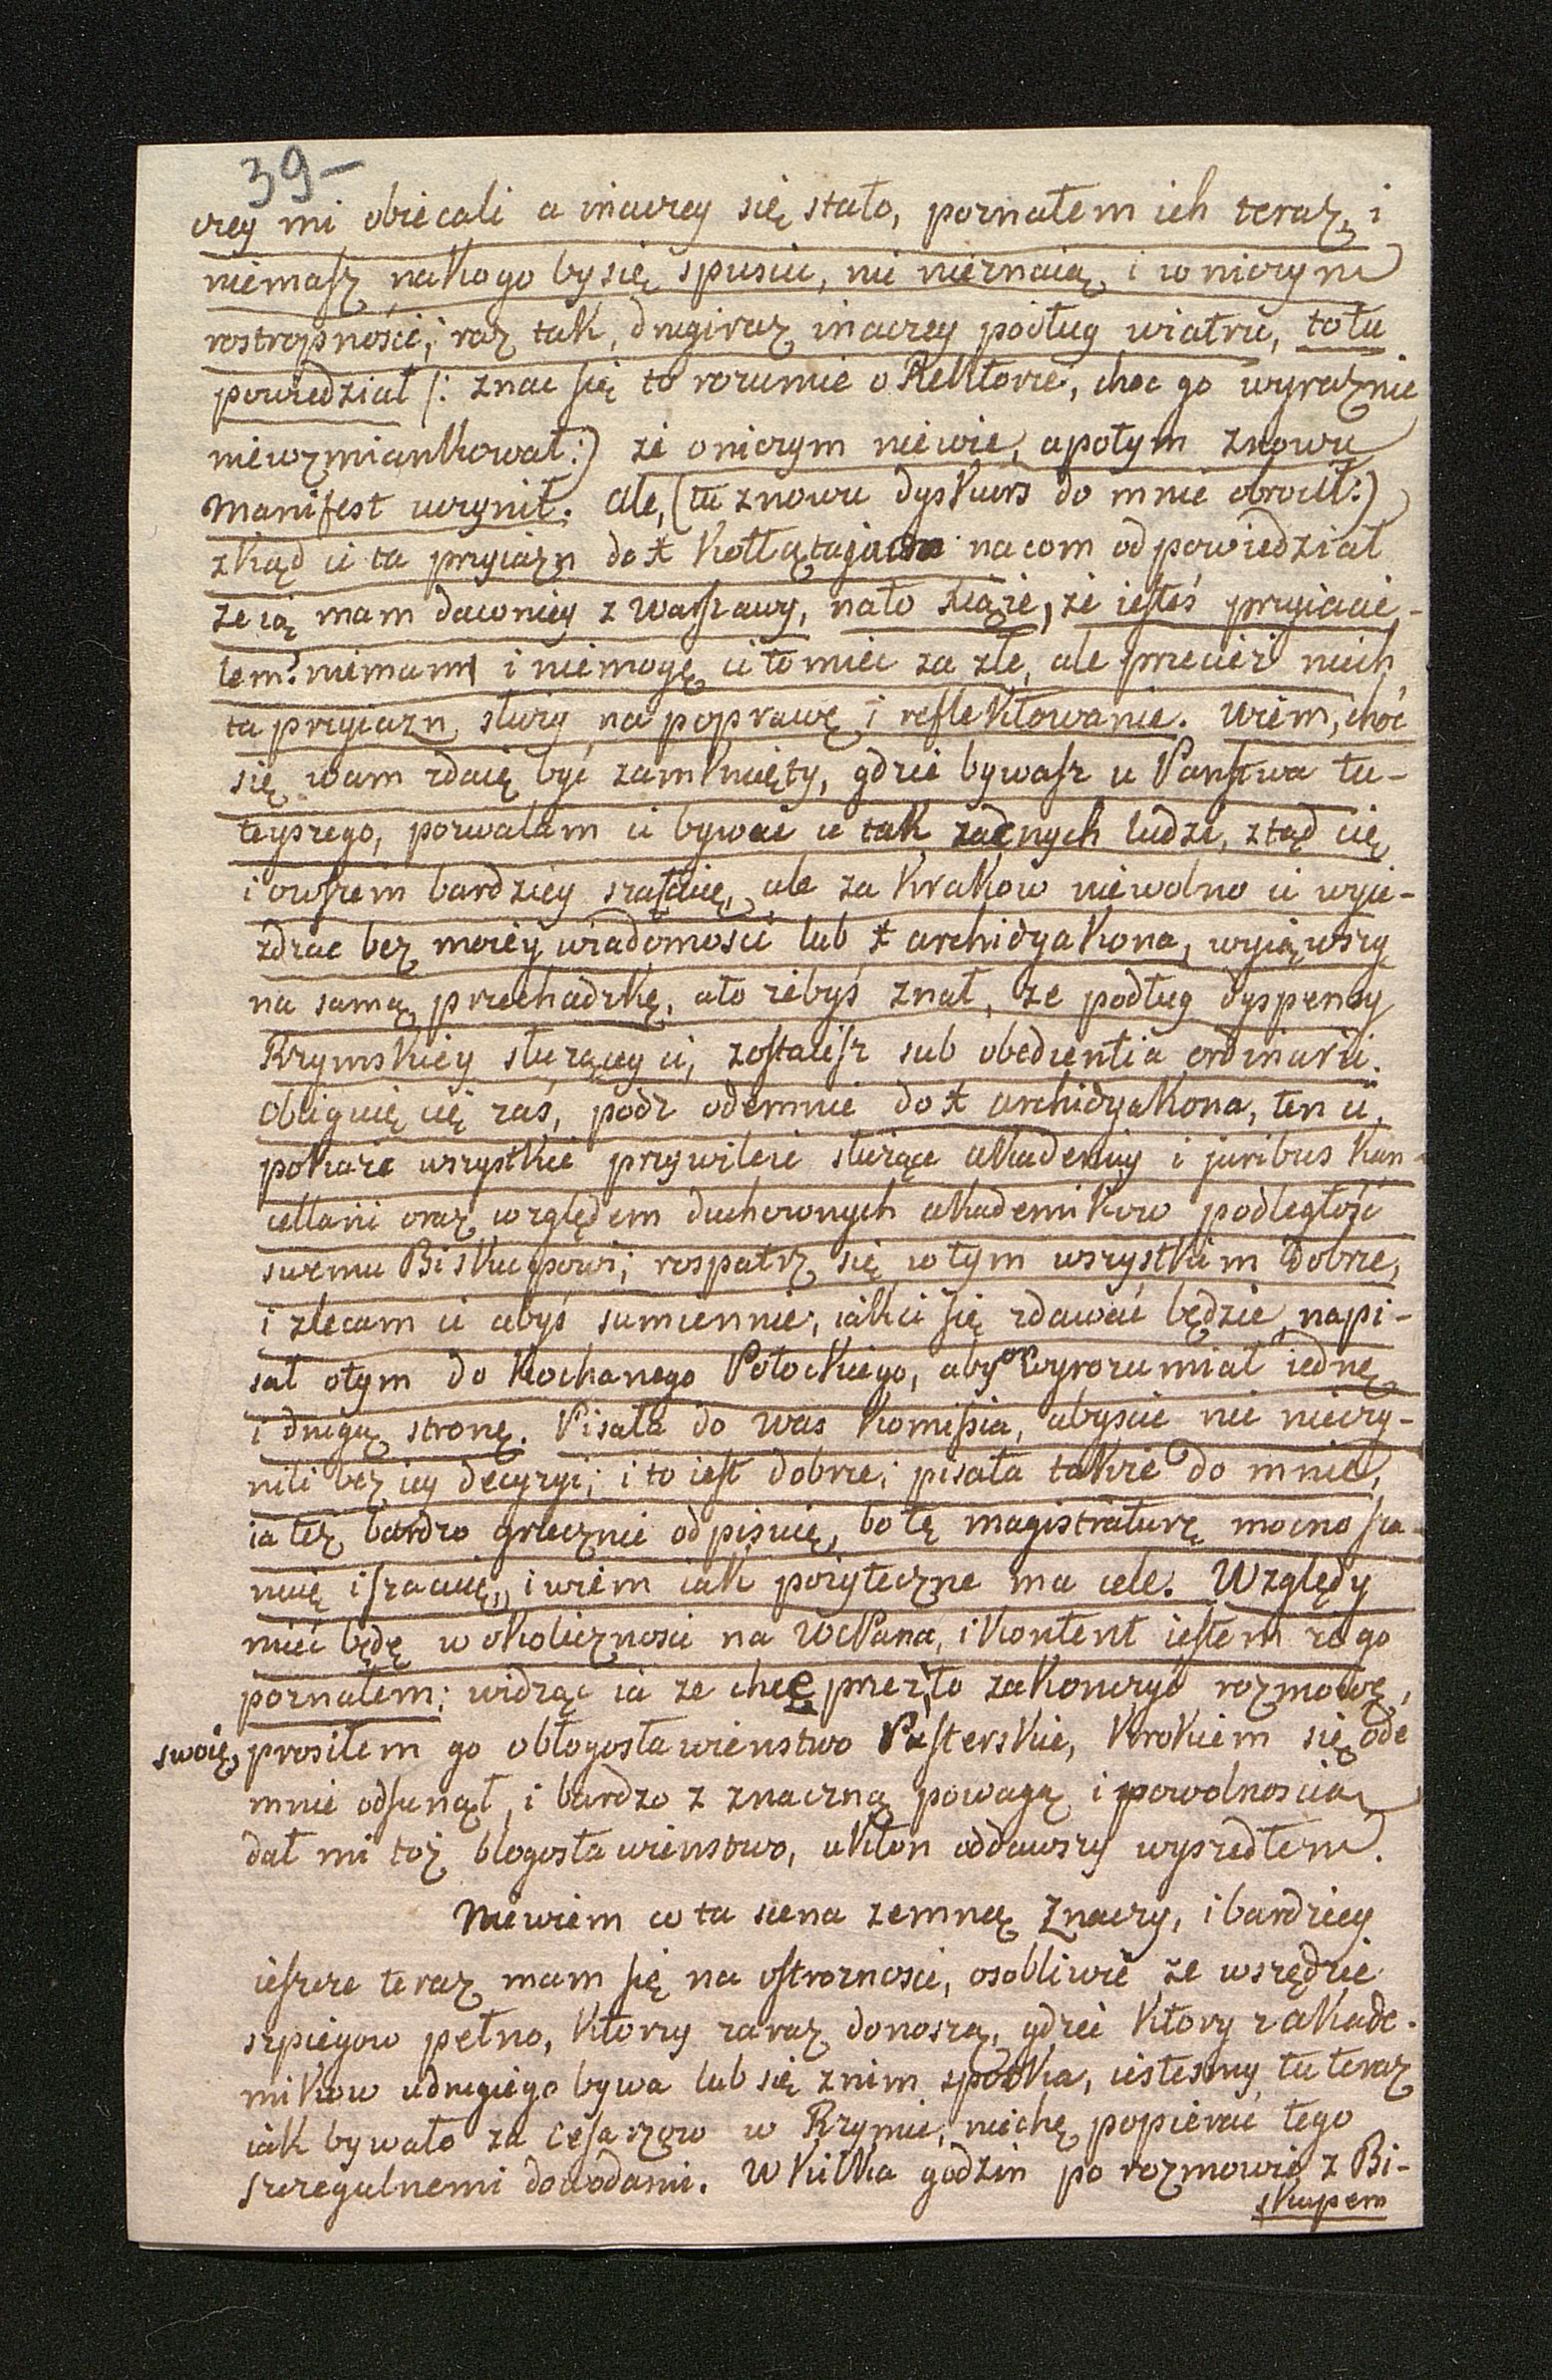 39-
czey mi obiecali a inaczey się stało, poznałem ich teraz, i
niemasz nakogo by się spuscić, nic nieznaią, i w niczym
rostropnosci, raz tak, drugi raz inaczey podług wiatru, to tu
powiedział /: znac się to rozumie o Rektorze, choc go wyraznie
niewzmiankował:) że oniczym niewie, apotym znowu
Manifest uczynił. Ale, (tu znowu dyskurs do mnie obrocił:)
zkąd ci ta przyiazn do X Kołłątaja nacom odpowiedział
że ią mam dawniey z Warszawy, nato Xiąże, że iesteś przyiacie-
lem? niemam i niemogę ci to miec za złe, ale przecież niech
ta przyiazn służy na poprawę i reflektowanie. Wiem, choc
się wam zdaię być zamknięty, gdzie bywasz u Państwa tu-
teyszego, pozwalam ci bywać u tak zacnych ludzi, ztąd cię
i owszem bardziey szacuię, ale za Krakow niewolno ci wyie-
zdzac bez moiey wiadomosci lub X archidyakona, wyiąwszy
na samą przechadzkę, ato żebyś znał, ze podług dyspensy
Rzymskiey służącey ci, zostaiesz sub obedientia ordinarii.
Obliguię cię zaś, podz odemnie do X archidyakona, ten ci
pokaże wszystkie przywileie służące Akademiy i juribus Kan-
cellarii oraz względem duchownych Akademikow podległość
swemu Biskupowi; rospatrz się w tym wszystkim dobrze,
i zlecam ci abyś sumiennie, iakci się zdawać będzie, napi-
sał otym do Kochanego Potockiego, aby on wyrozumiał iednę
i drugą stronę. Pisała do was Komissia, abyscie nic nieczy-
nili bez iey decyzyi; i to iest dobrze; pisała także do mnie,
ia też bardzo grzecznie odpisuię, bo tę magistraturę mocno sza-
nuię i szacuię, i wiem iak pożyteczne ma cele. Względy
mieć będę w okolicznosci na WcPana, i kontent iestem że go
poznałem; widząc ia ze chce przez to zakonczyć rozmowę,
swoię, prosiłem go o błogosławienstwo Pasterskie, krokiem się ode
mnie odsunął, i bardzo z znaczną powagą i powolnoscią
dał mi toż błogosławienstwo, ukłon oddawszy wyszedłem.
Niewiem co ta scena zemną znaczy, i bardziey
ieszcze teraz mam się na ostroznosci, osobliwie że wszędzie
szpiegow pełno, ktorzy zaraz donoszą, gdzie ktory z Akade-
mikow u drugiego bywa lub się z nim spotka, iestesmy tu teraz
iak bywało za Cesarzow w Rzymie, niechę popierać tego
szczegulnemi dowodami. W kilka godzin po rozmowie z Bi-
skupem